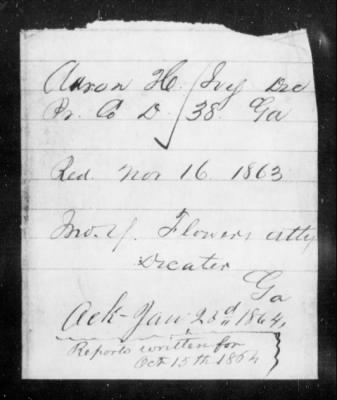 Aaron H. Ivy Dec
Pr. Co D. 38. Ga
Recd Nov 16 1863
Jno. Y. Flowers atty
Decater
Ga
Ack - Jan 23d 1864,
Reports written for
Oct 15th 1864